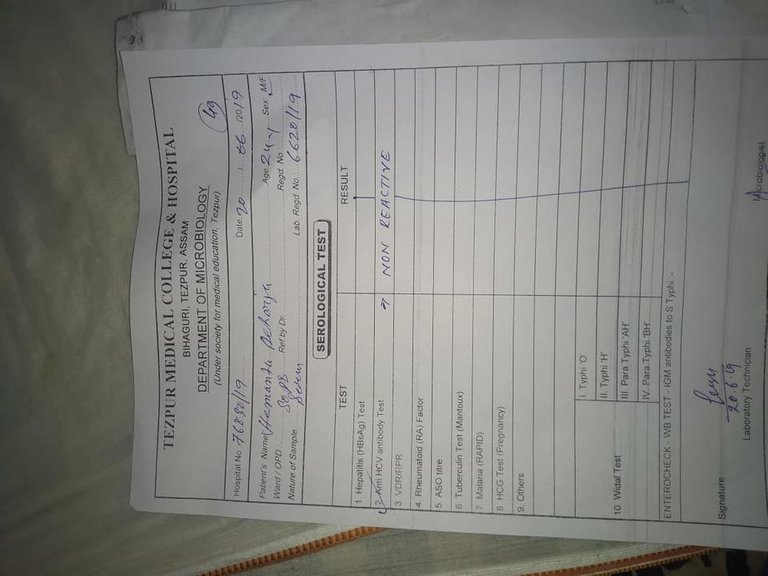 49
TEZPUR MEDICAL COLLEGE & HOSPITAL
BIHAGURI, TEZPUR, ASSAM
DEPARTMENT OF MICROBIOLOGY
(Under society for medical education, Tezpur)
Hospital No. 76830/19 Date 20 / 06 /2019
Patient's Name Hemanta Dekaraja Age 24 y Sex M/F
Ward / OPD Ref by Dr. Regd. No.
Nature of Sample Serum Lab. Regd. No. 6620/19
SEROLOGICAL TEST
TEST RESULT
1. Hepatitis (HBsAg) Test
2. Anti HCV antibody Test → NON REACTIVE
3 VDR/RPR
4. Rheumatoid (RA) Factor
5. ASO titre
6. Tuberculin Test (Mantoux)
7. Malaria (RAPID)
8. HCG Test (Pregnancy)
9. Others
10. Widal Test
I. Typhi 'O'
II. Typhi 'H'
III. Para Typhi 'AH'
IV. Para Typhi 'BH'
ENTEROCHECK - WB TEST - IGM antibodies to S Typhi :-
Signature
20.6.19
Laboratory Technician Microbiologist